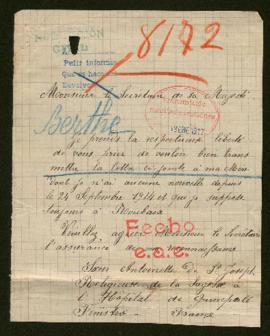 8172
Pedir informes
Monsieur le Secrétaire de Sa Majesté
Berthe
je prends la respectueuse liberté
de vous prier de vouloir bien trans
mettre la lettre ci-jointe à ma
dont je n'ai aucune nouvelle depuis
le 24 Septembre 1914 et que je suppose
toujours à
Veuillez agréer Monsieur le Secrétaire
l'assurance de ma reconnaissance
Fecho
e.a.e.
Sœur Antoinette de St Joseph
Religieuse de la Sagesse à
l'Hôpital de Quimperlé
Finistère France